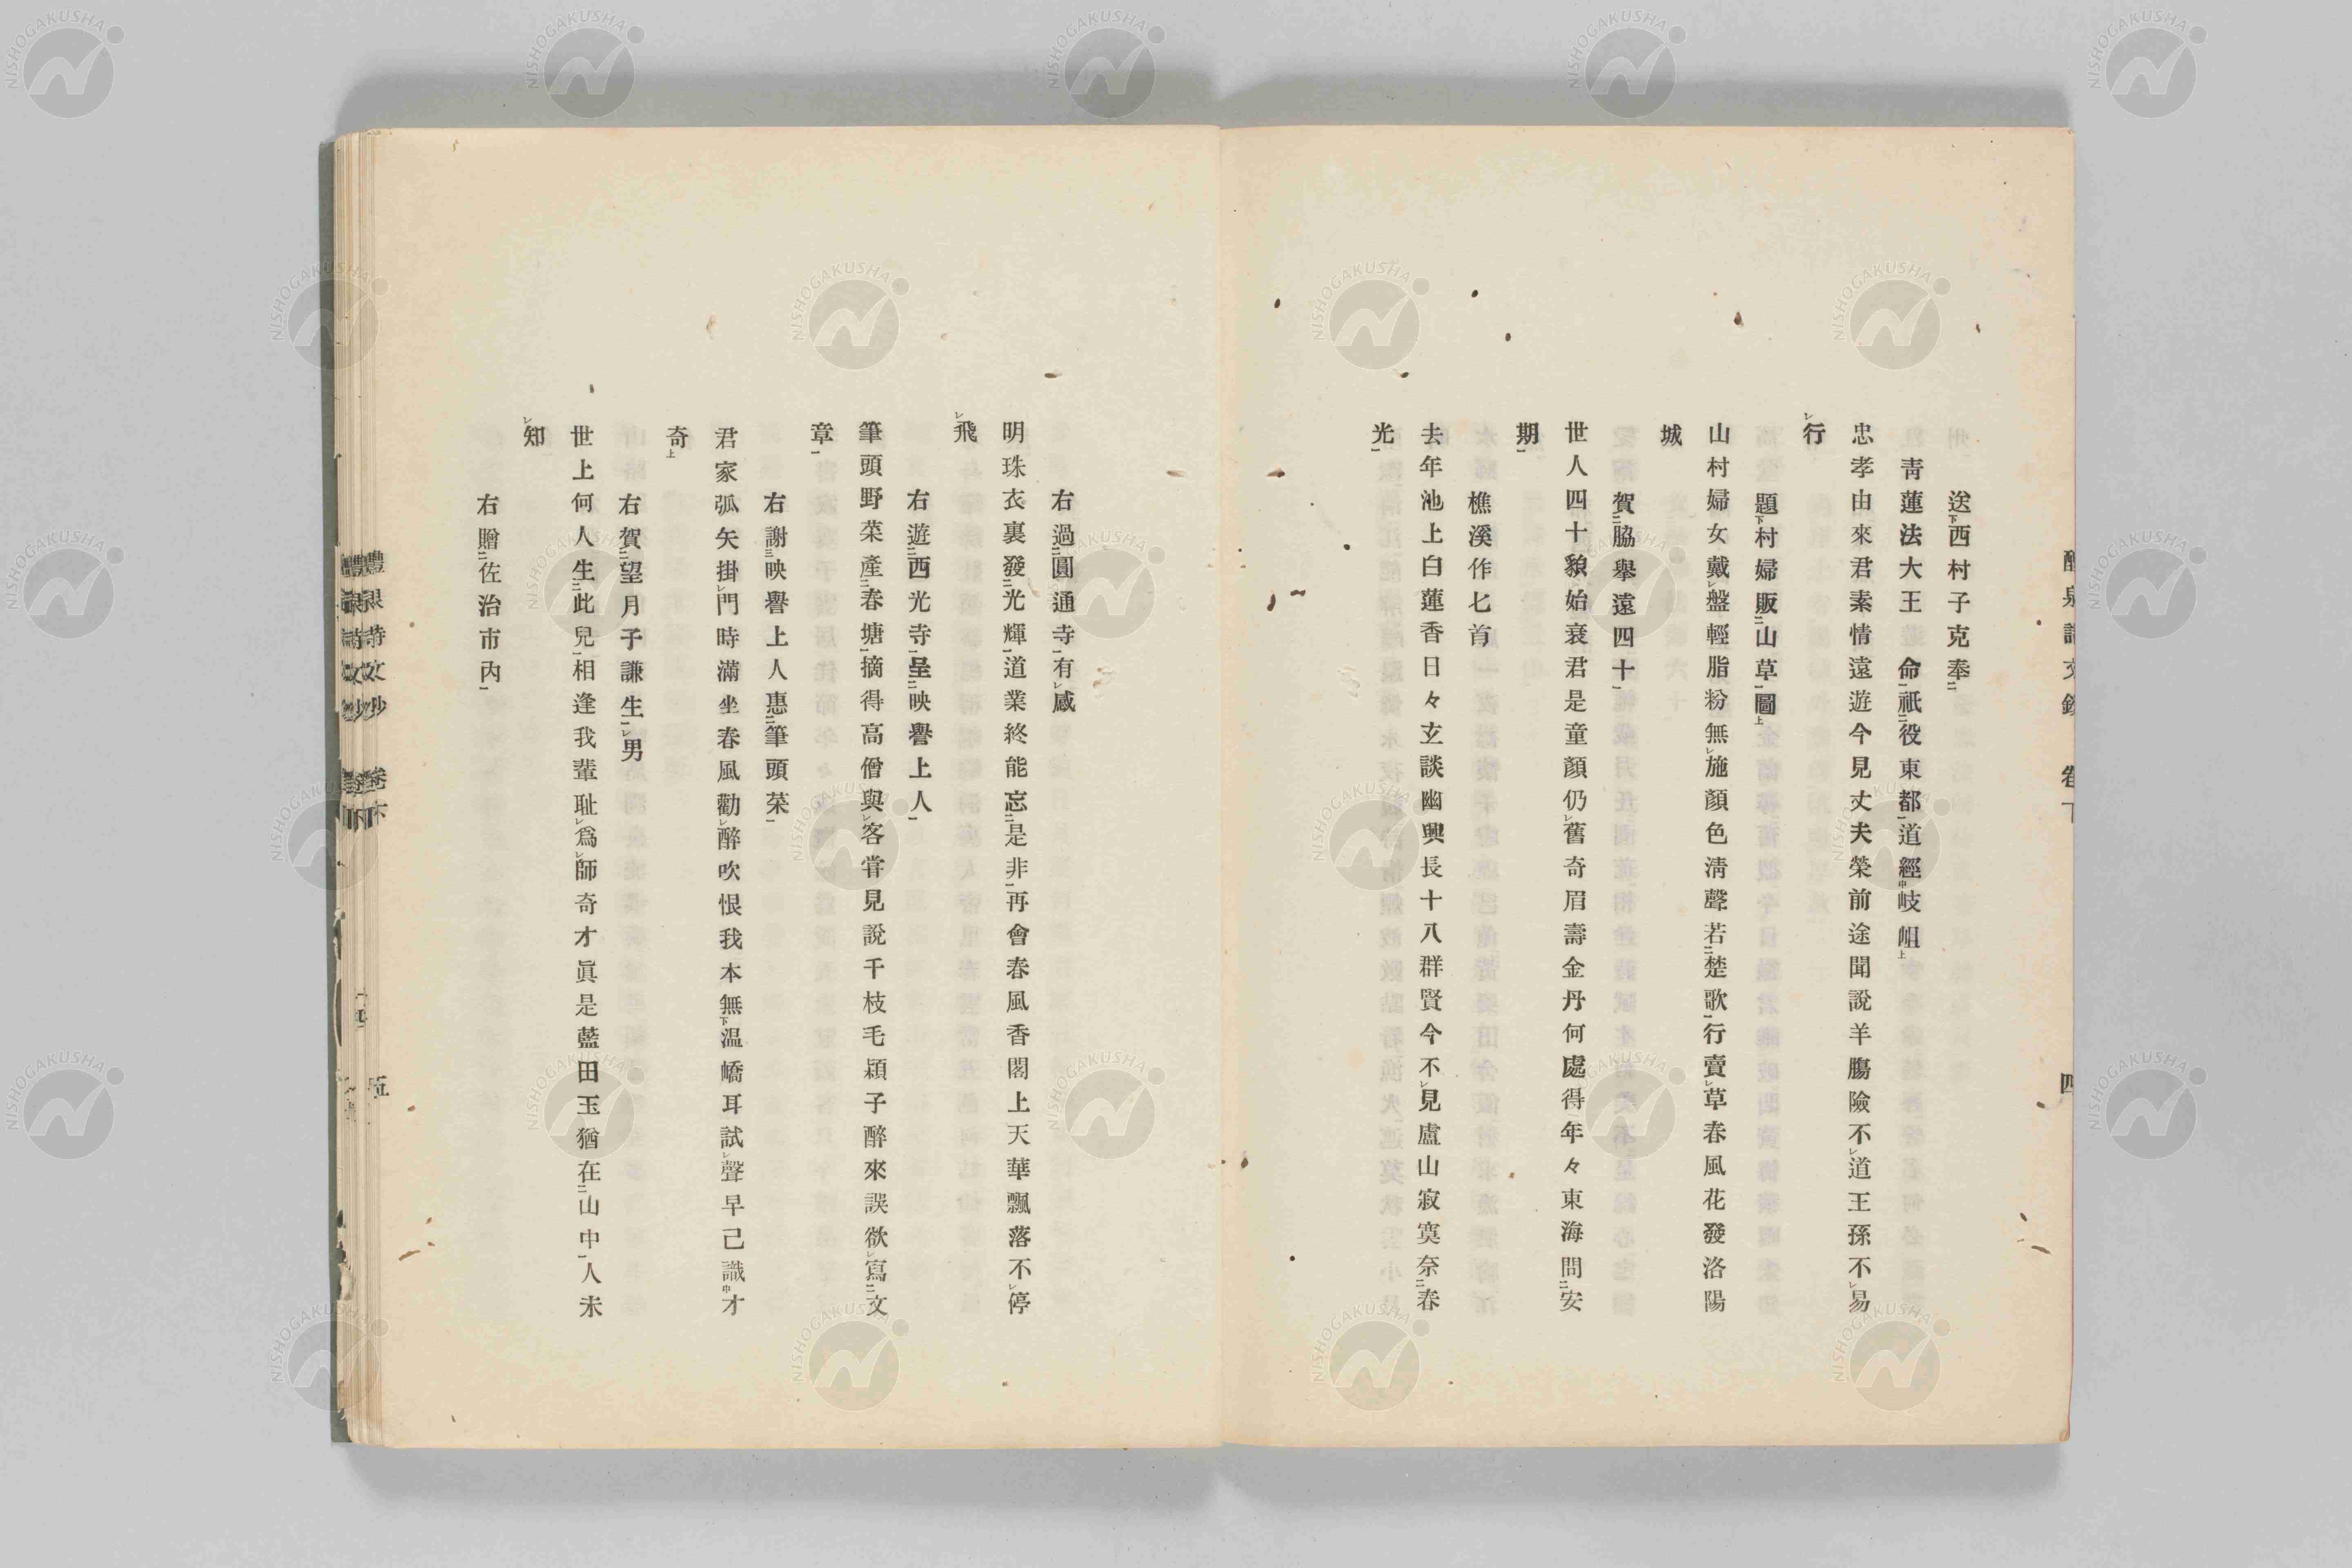 送西村子克奉
青蓮法大王命祇役東都道經岐岨
忠孝由來君素情遠遊今見丈夫榮前途聞說羊膓險不道王孫不易
行
題村婦販山草圖
山村婦女戴盤輕脂粉無施顏色淸聲若楚歌行賣草春風花發洛陽
城
賀脇舉遠四十
世人四十貌始衰君是童顏仍舊奇眉壽金丹何處得年々東海問安
期
樵溪作七首
去年池上白蓮香日々玄談幽興長十八群賢今不見盧山寂寞奈春
光
右過圓通寺有感
明珠衣裏發光輝道業終能忘是非再會春風香閣上天華飄落不停
飛
右遊西光寺呈映譽上人
筆頭野菜產春塘摘得高僧與客甞見說千枝毛頴子醉來誤欲寫文
章
右謝映譽上人惠筆頭菜
君家弧矢掛門時滿坐春風勸醉吹恨我本無温嶠耳試聲早已識才
奇
右賀望月子謙生男
世上何人生此兒相逢我輩耻爲師奇才眞是藍田玉猶在山中人未
知
右贈佐治市丙
卷下
四
五
NISHOGAKUSHA